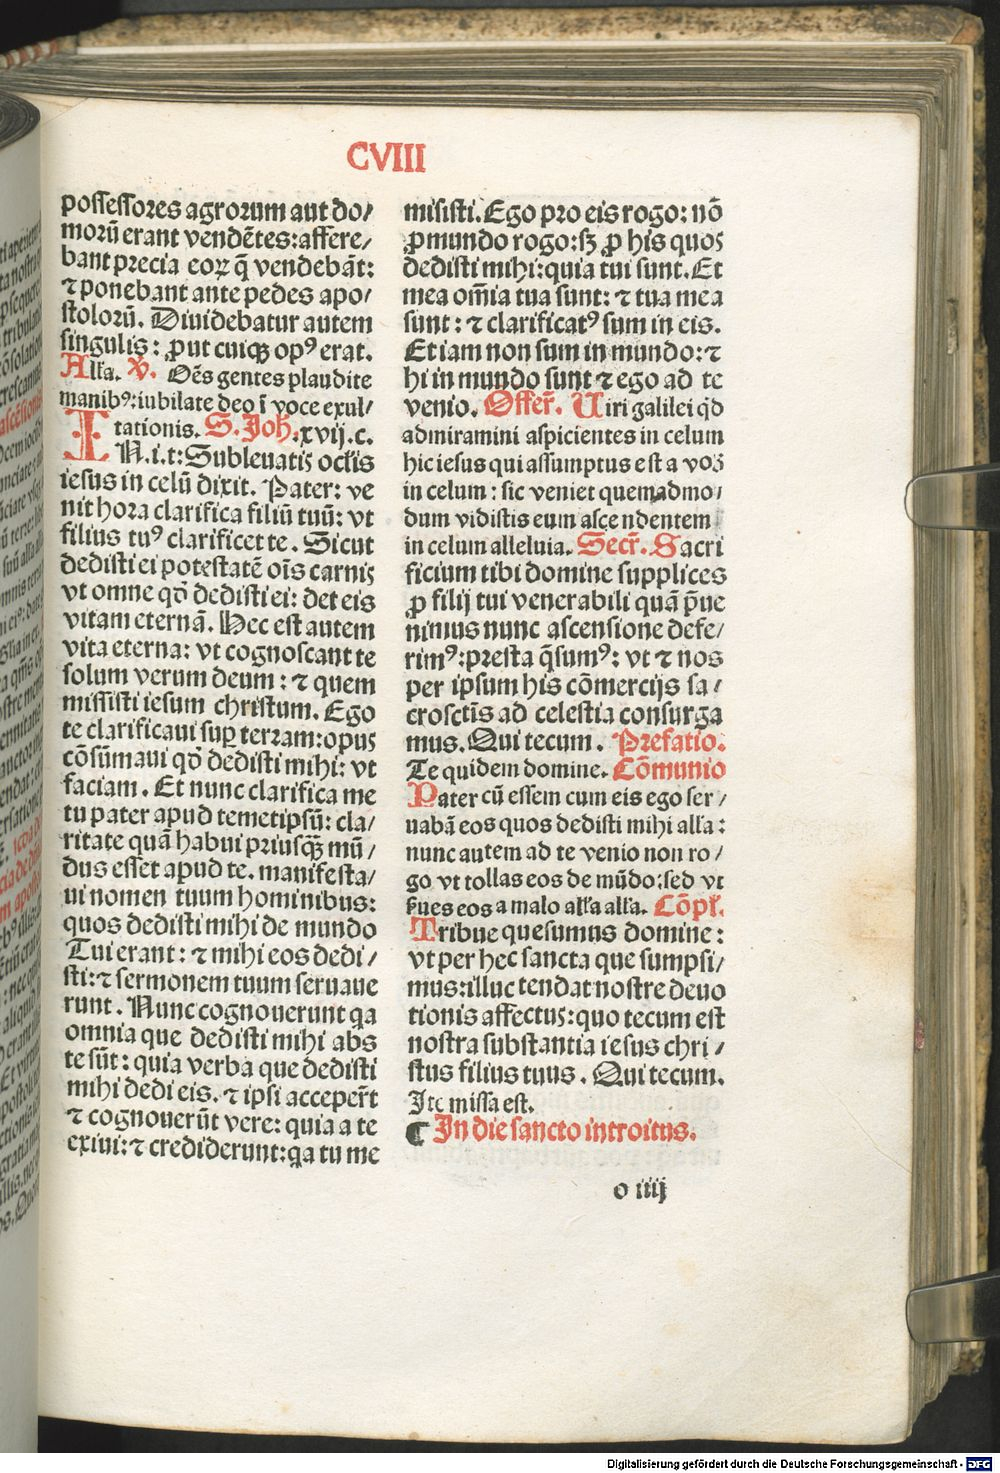 CVIII
possessores agrorum aut do/
morū erant vendētes: affere/
bant precia eoꝝ q̄ vendebāt:
⁊ ponebant ante pedes apo/
stolorū. Diuidebatur autem
singulis: ꝓut cuiqꝫ opꝰ erat.
Alla. V. Oēs gentes plaudite
manibꝰ: iubilate deo ī voce exul/
tationis. S. Joh. xvij. c.
IN.i.t: Subleuatis oclis
iesus in celū dixit. Pater: ve
nit hora clarifica filiū tuū: vt
filius tuꝰ clarificet te. Sicut
dedisti ei potestatē oīs carnis
vt omne qđ dedisti ei: det eis
vitam eternā. Hec est autem
vita eterna: vt cognoscant te
solum verum deum: ⁊ quem
missisti iesum christum. Ego
te clarificaui suꝑ terram: opus
cōsūmaui qđ dedisti mihi: vt
faciam. Et nunc clarifica me
tu pater apud temetipsū: cla/
ritate quā habui priusqꝫ mū/
dus esset apud te. manifesta/
ui nomen tuum hominibus:
quos dedisti mihi de mundo
Tui erant: ⁊ mihi eos dedi/
sti: ⁊ sermonem tuum seruaue
runt. Nunc cognouerunt qa
omnia que dedisti mihi abs
te sūt: quia verba que dedisti
mihi dedi eis. ⁊ ipsi acceper̄t
⁊ cognouerūt vere: quia a te
exiui: ⁊ crediderunt: qa tu me
misisti. Ego pro eis rogo: nō
ꝓ mundo rogo: sꝫ ꝓ his quos
dedisti mihi: quia tui sunt. Et
mea om̄ia tua sunt: ⁊ tua mea
sunt: ⁊ clarificatꝰ sum in eis.
Et iam non sum in mundo: ⁊
hi in mundo sunt ⁊ ego ad te
venio. Offer̄. Uiri galilei qđ
admiramini aspicientes in celum
hic iesus qui assumptus est a voꝫ
in celum: sic veniet quemadmo/
dum vidistis eum ascendentem
in celum alleluia. Secr̄. Sacri
ficium tibi domine supplices
ꝓ filij tui venerabili quā p̄ue
nimus nunc ascensione defe/
rimꝰ: presta q̄sumꝰ: vt ⁊ nos
per ipsum his cōmercijs sa/
crosctīs ad celestia consurga
mus. Qui tecum. Prefatio.
Te quidem domine. Cōmunio
Pater cū essem cum eis ego ser/
uabā eos quos dedisti mihi alla:
nunc autem ad te venio non ro/
go vt tollas eos de mūdo: sed vt
ẜues eos a malo alla alla. Cōpl.
Tribue quesumus domine:
vt per hec sancta que sumpsi/
mus: illuc tendat nostre deuo
tionis affectus: quo tecum est
nostra substantia iesus chri/
stus filius tuus. Qui tecum.
Ite missa est.
¶ In die sancto introitus.
o iiij
Digitalisierung gefördert durch die Deutsche Forschungsgemeinschaft - DFG